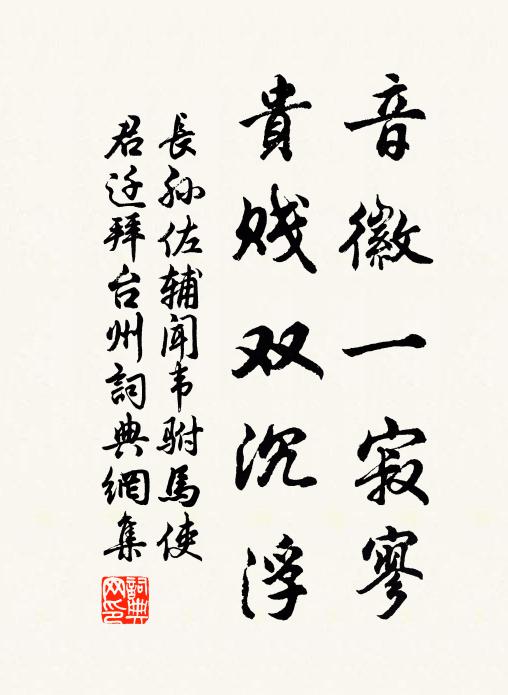 音徽一寂寥
貴賤双沉浮
長孙佐辅闻韦駙馬使
君迁拜台州詞典網集
詞典
网印